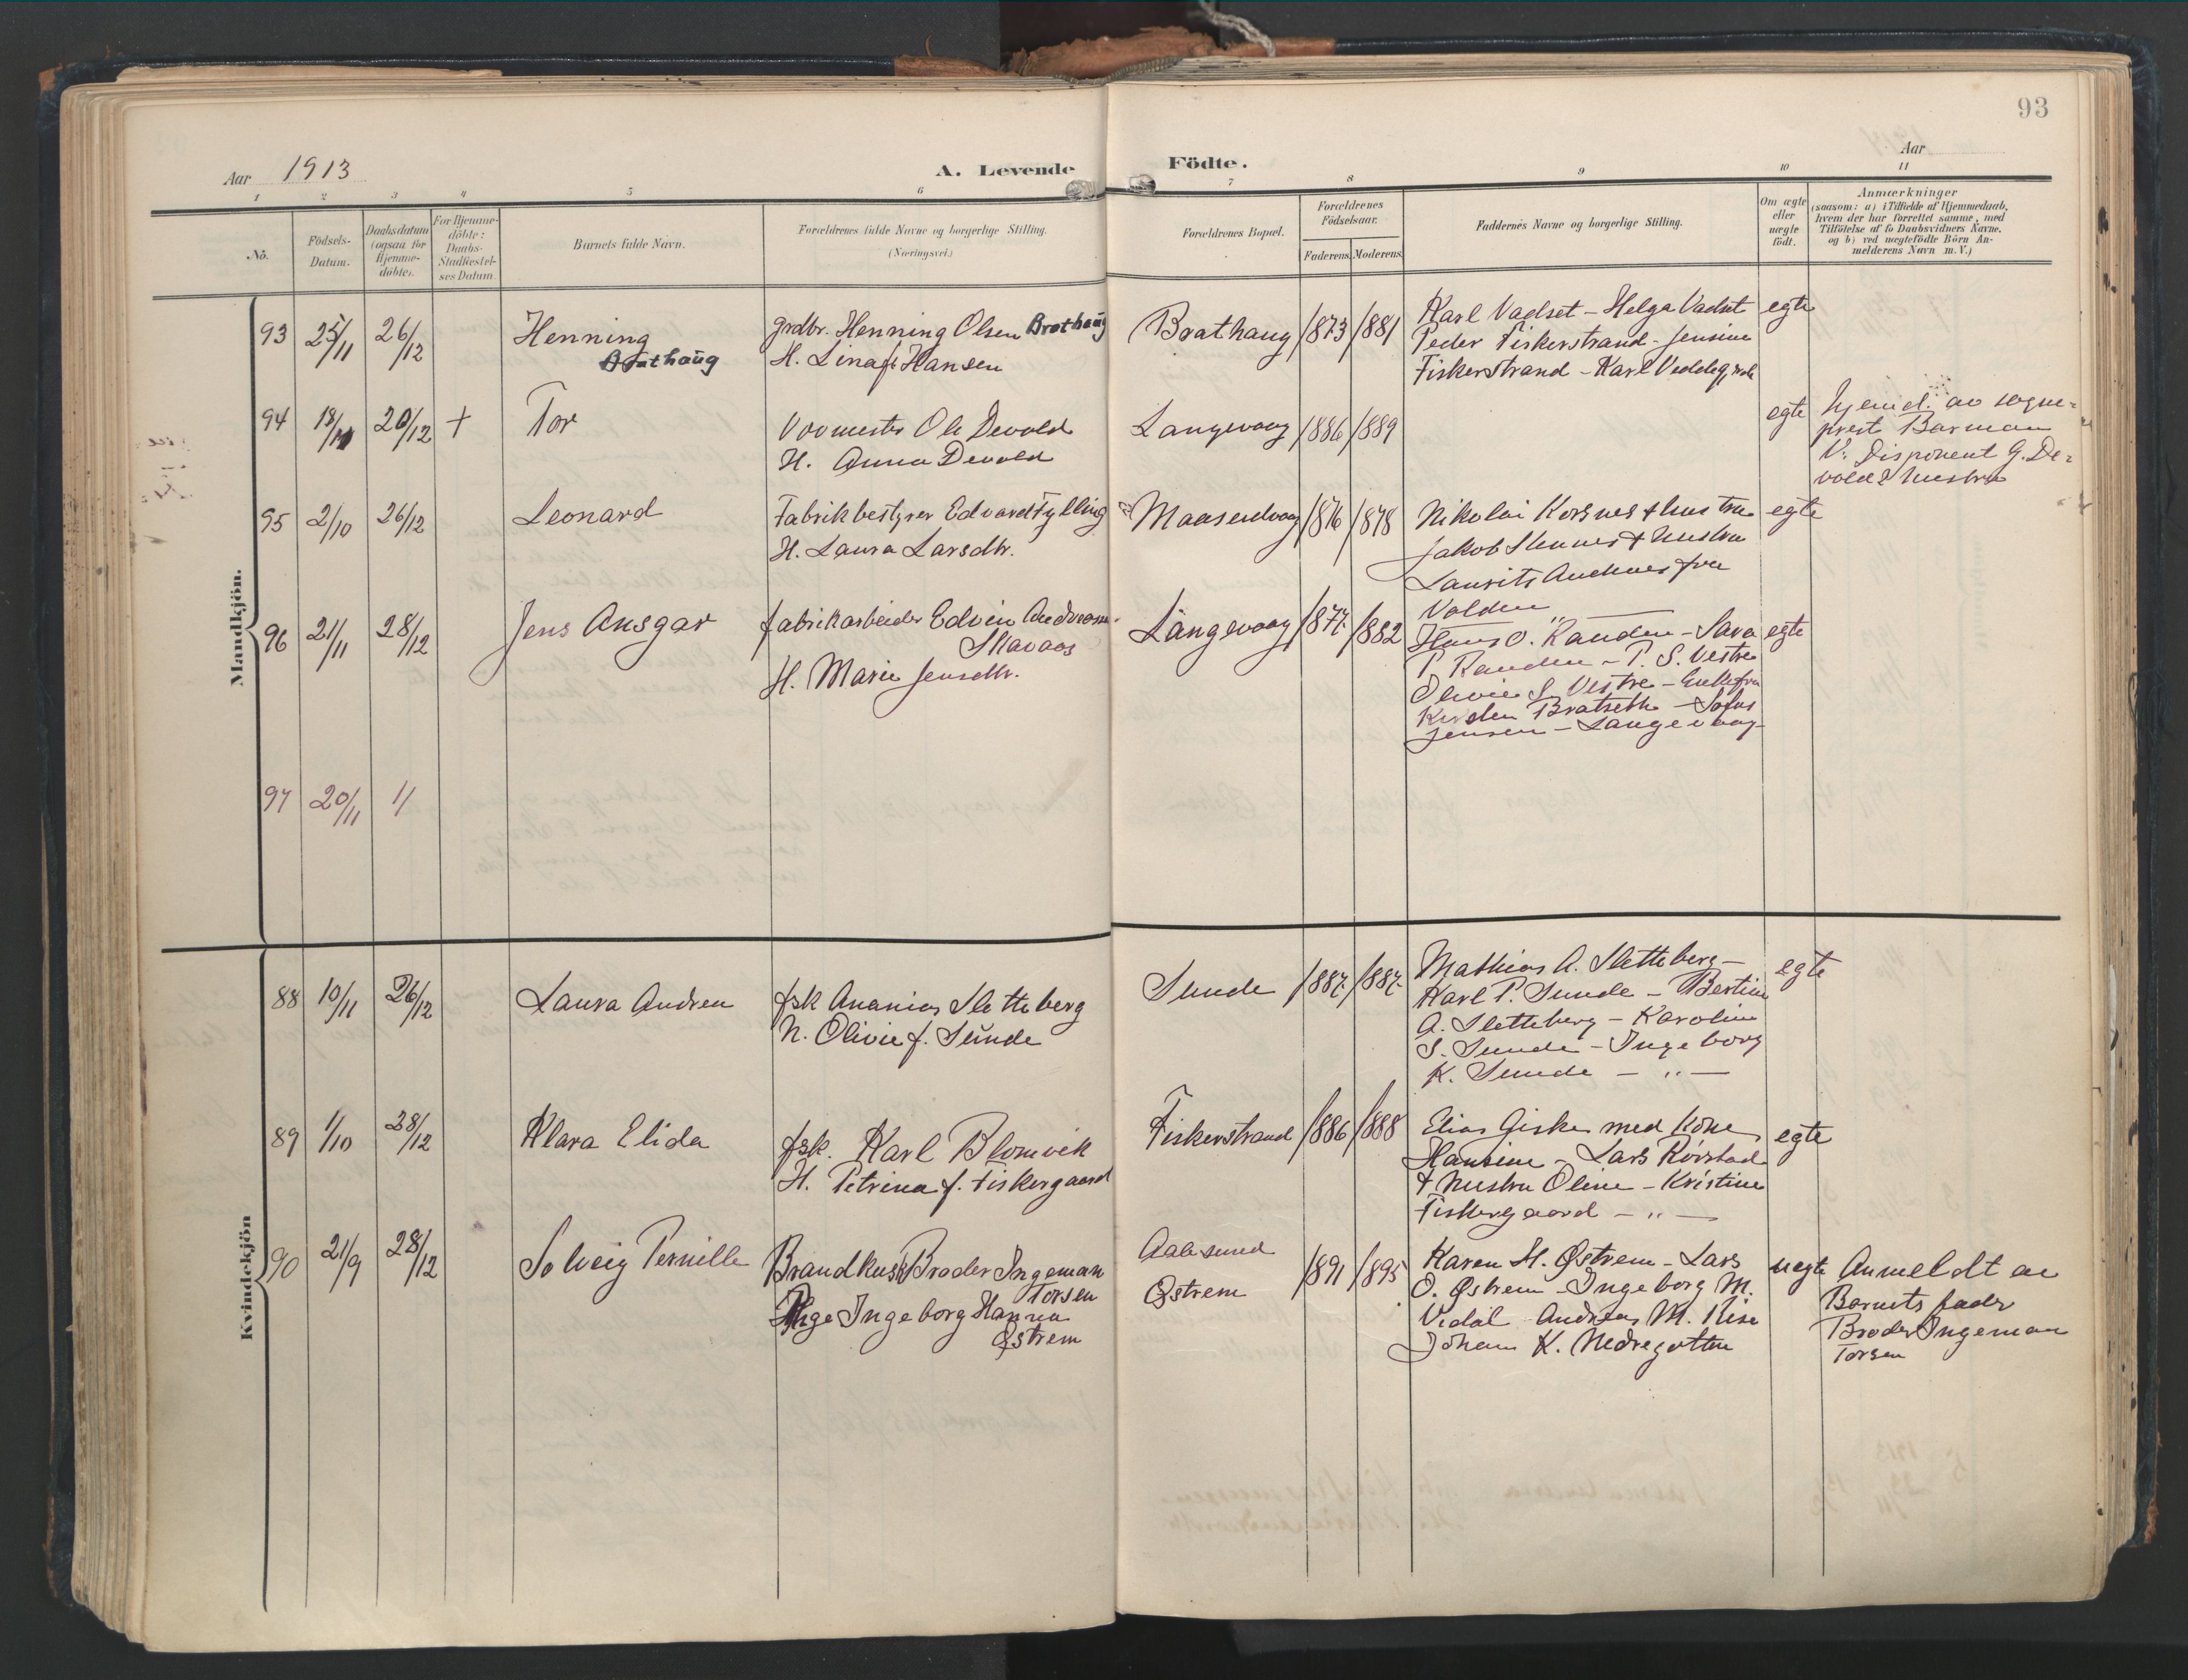 93
Aar 1913
A. Levende Födte.
Aar
1 2 3 4 5 6 7 8 9 10 11
No.
Födsels-Datum.
Daabsdatum (ogsaa for Hjemme-döbte).
For Hjemme-döbte: Daabs-Stadfæstel-ses Datum
Barnets fulde Navn.
Forældrenes fulde Navne og borgerlige Stilling.
(Næringsvei.)
Forældrenes Bopæl.
Forældrenes Födselsaar.
Faderens. Moderens.
Faddernes Navne og borgerlige Stilling.
Om ægte eller uægte födt.
Anmærkninger
(saasom: a) i Tilfælde af Hjemmedaab,
hvem der har forrettet samme, med
Tilföielse af to Daabsvidners Navne,
og b) ved uægtefödte Börn An-
melderens Navn m.V.)
Mandkjön.
93 25/11 26/12 Henning Brathaug
grdbr. Henning Olsen Brathaug
H. Lina f. Hansen
Brathaug 1873 1881
Karl Vadset - Helga Vadset
Peder Fiskerstrand - Jensine
Fiskerstrand - Karl
egte
94 18/11 20/12 + Tor
Vevmester Ole Devold
H. Anna Devold
Langevaag 1886 1889
egte
hjemd. av sogne-
prest Barman
V: Disponent G. De-
vold & hustru
95 2/10 26/12 Leonard
Fabrikbestyrer Edvard Fylling
H. Laura Larsdtr.
Maaseidvaag 1876 1878
Nikolai Korsnes & hustru
Jakob Slenes & hustru
Laurits Aucknes fra
Valden
egte
96 21/11 28/12 Jens Ansgar
fabrikarbeider Edvin Andreas
Skavaas
H. Marie Jensdtr.
Langevaag 1877 1882
Hans O. Randen - Sara
P. Randen - P. S. Vestre
Olivie S. Vestre - Enkefru
Kirsten Bratseth - Sofus
Jensen - Langevaag -
egte
97 20/11 1/
Kvindekjön
88 10/11 26/12 Laura Andrea
fsk Ananias Sletteberg
H. Olivie f. Sunde
Sunde 1887 1887
Mathias A. Sletteberg -
Karl P. Sunde - Bertine
A. Sletteberg - Karoline
S. Sunde - Ingeborg
K. Sunde - " -
egte
89 1/10 28/12 Klara Elida
fsk. Karl Blomvik
H. Petrina f. Fiskergaard
Fiskerstrand 1886 1888
Elias Giske med kone
Hansine - Lars Rørstad
& hustru Oline - Kristine
Fiskergaard - " -
egte
90 21/9 28/12 Solveig Pernille
Brandkusk Broder Ingeman
Torsen
Pige Ingeborg Hanna
Østrem
Aalesund
Østrem
1891 1895
Karen H. Østrem - Lars
O. Østrem - Ingeborg M.
Vidal - Andreas M. Rise
Johan K. Nedregotten
uegte
Anmeldt av
Barnets fader
Broder Ingeman
Torsen